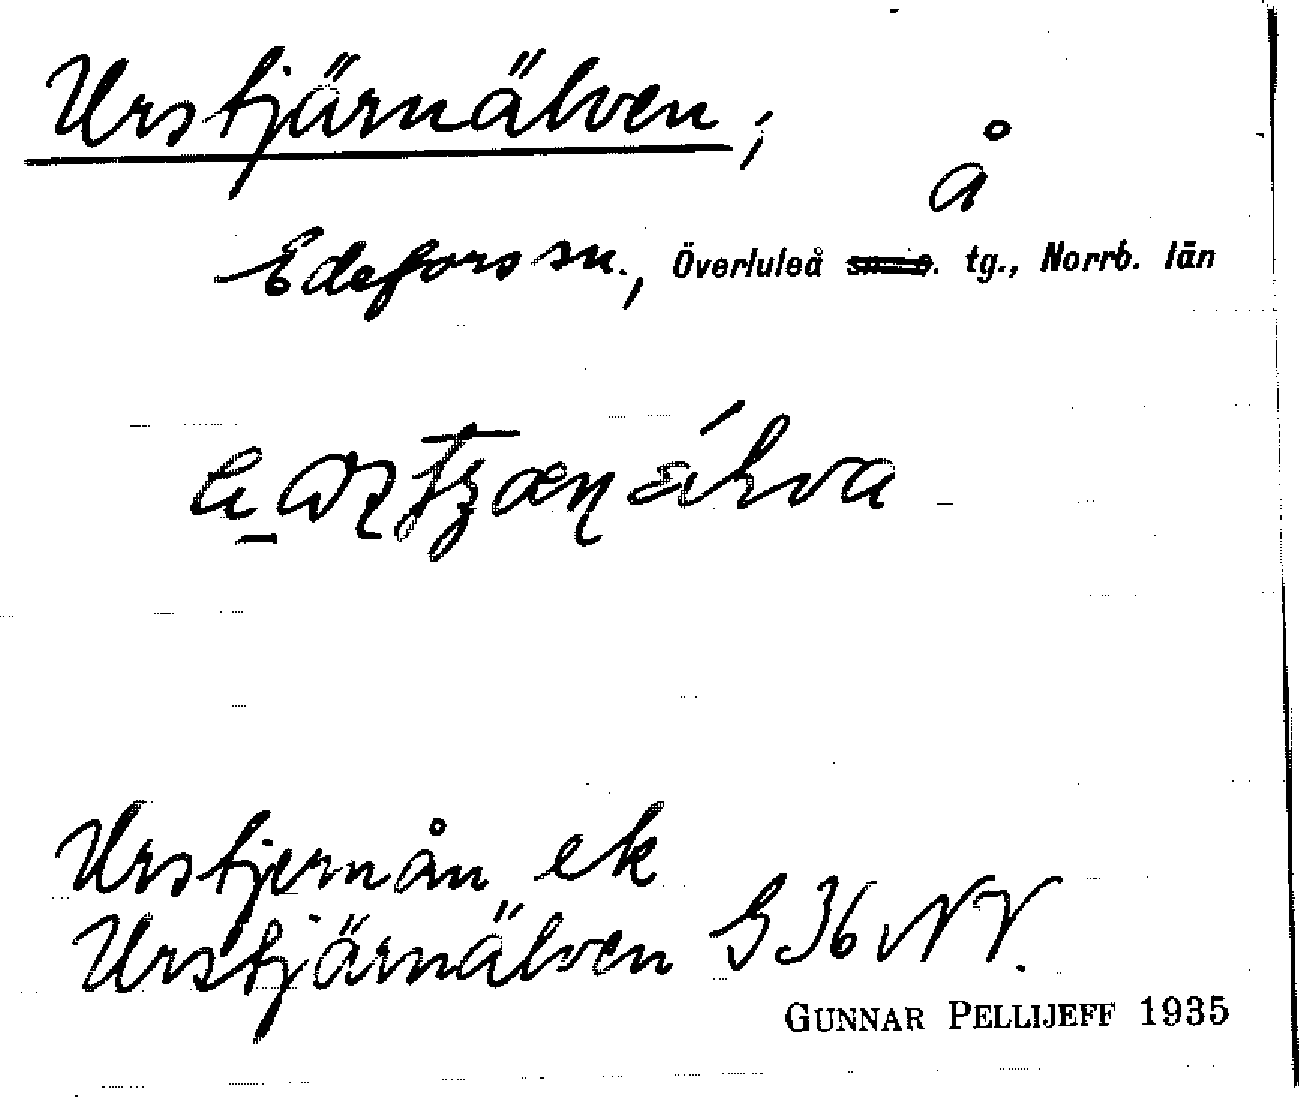 Urstjärnälven;
å
Edefors sn., Överluleå tg., Norrb. län
Urstjernån ek
Urstjärnälven G 36 NV.
GUNNAR PELLIJEFF 1935